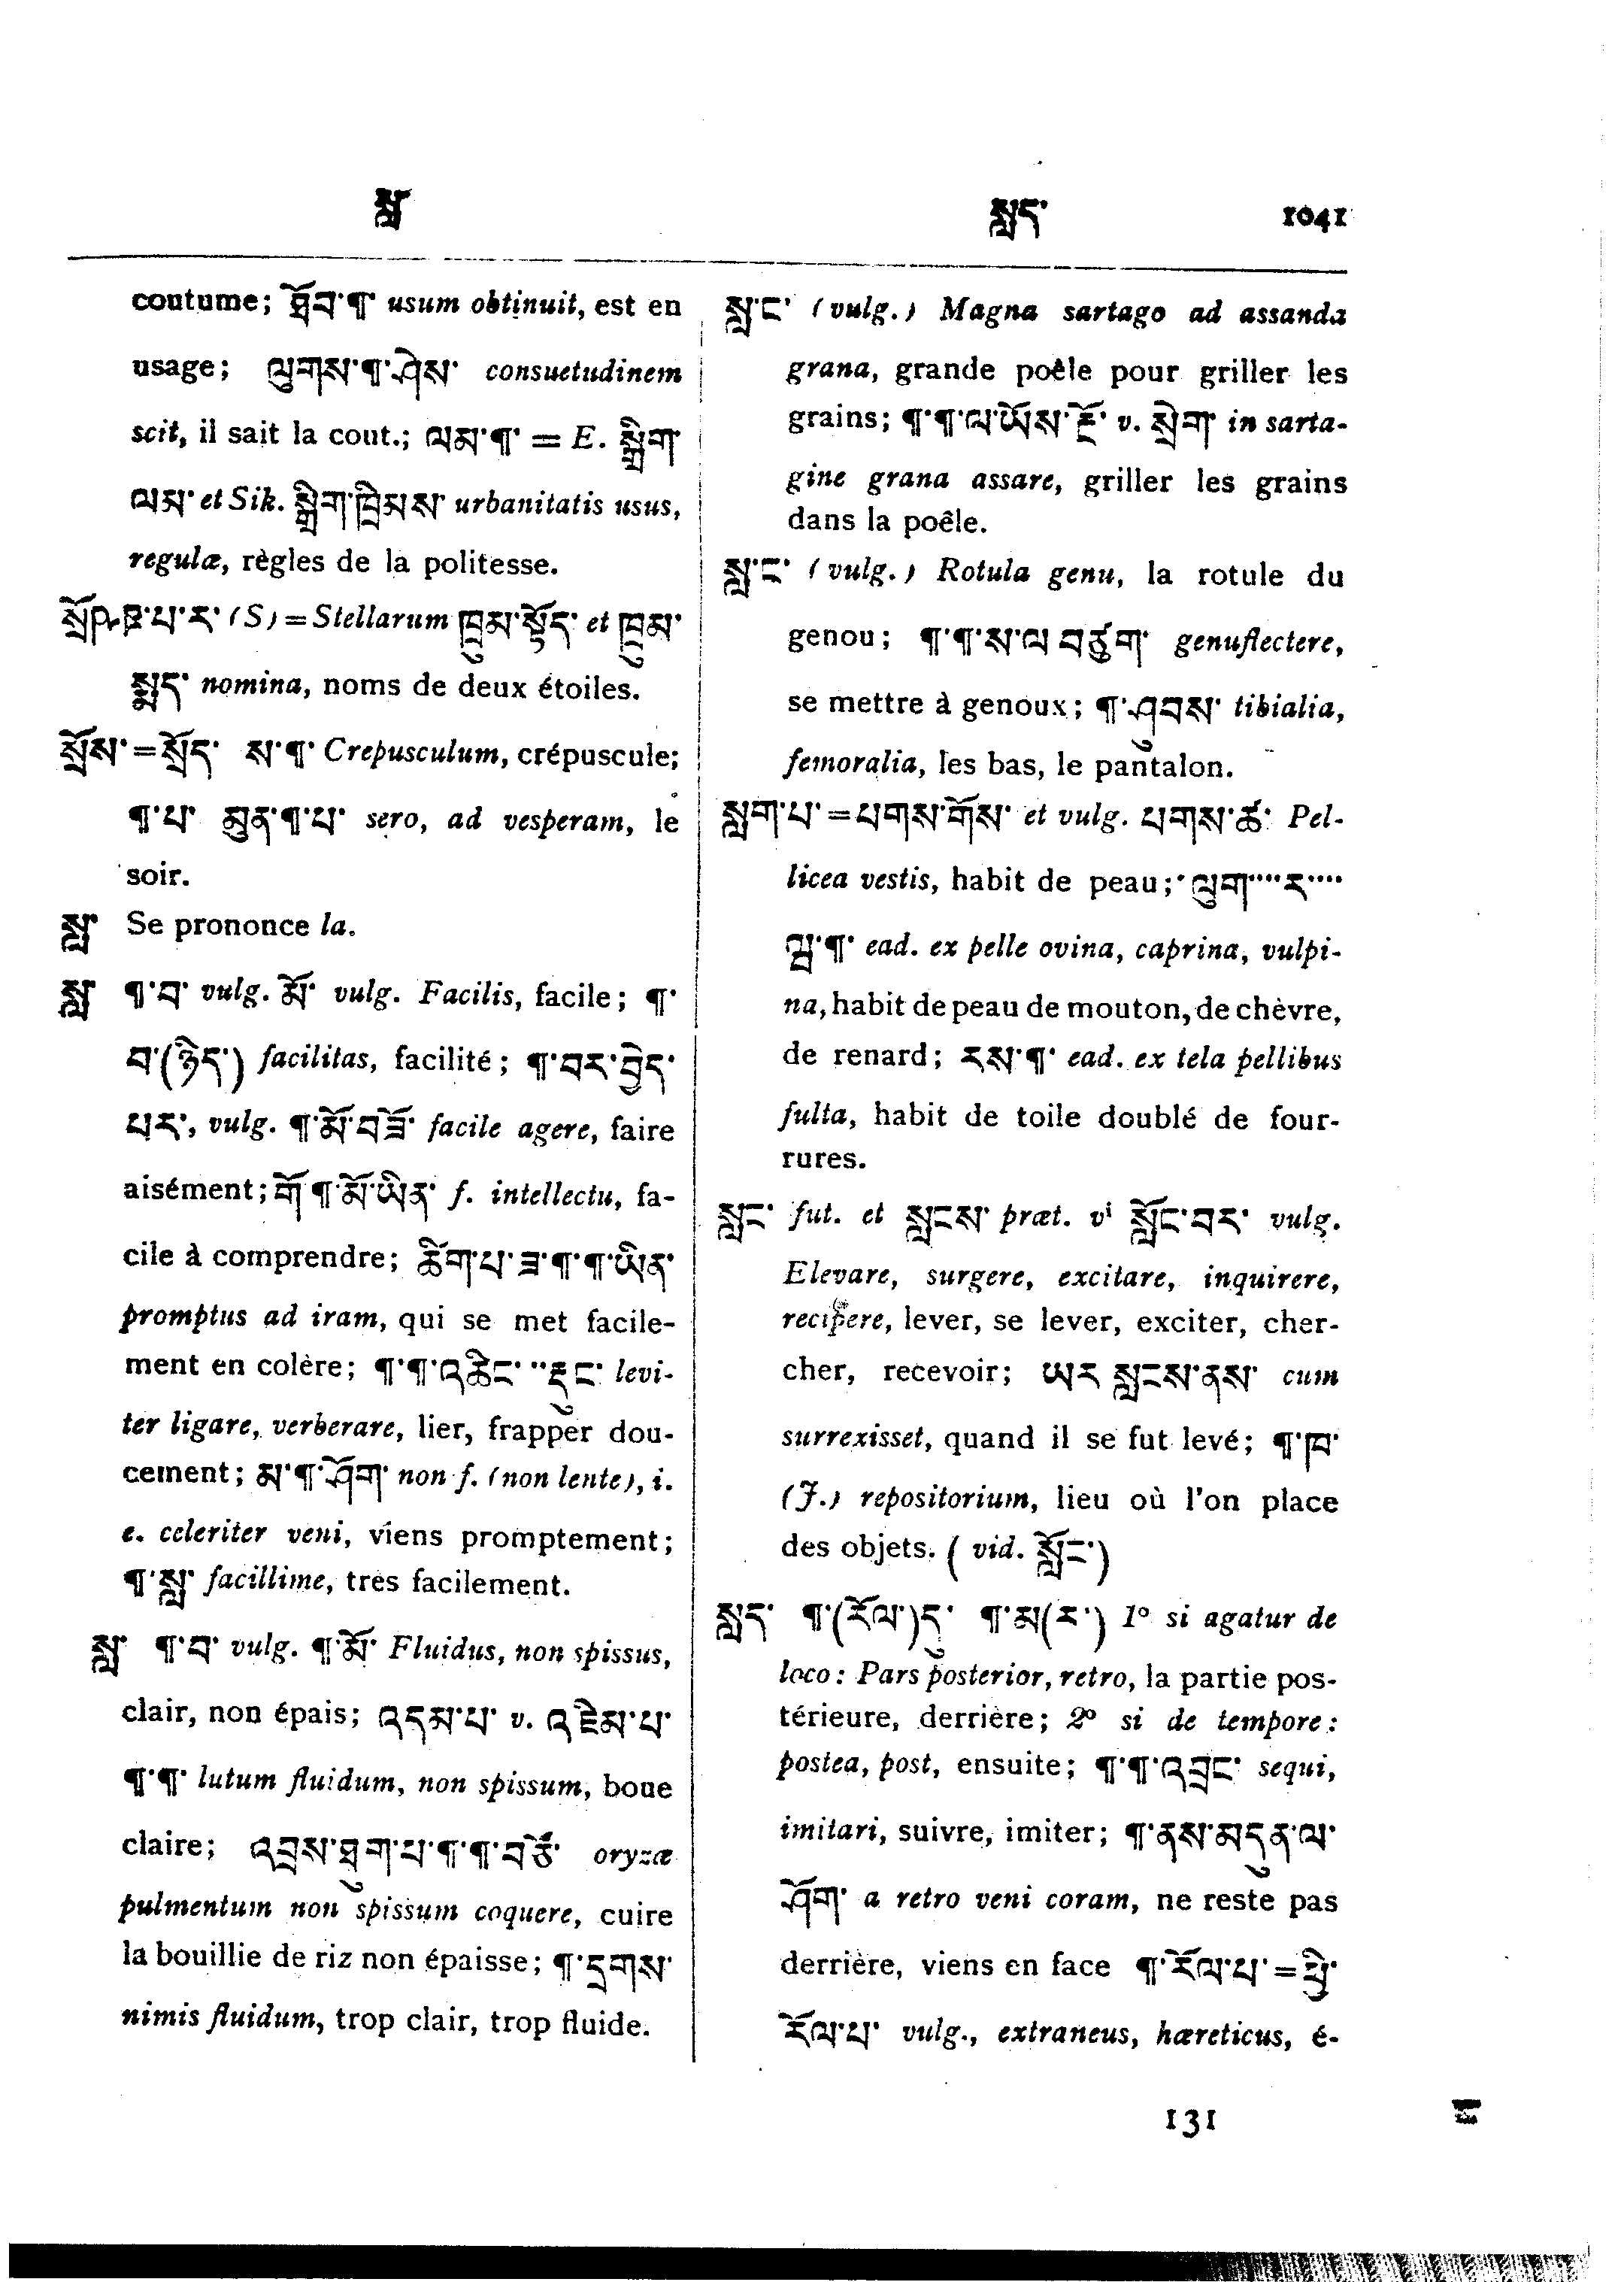 སླ
སླད་ 1041
coutume; ཐོབ་¶་ usum obtinuit, est en
usage; ལུགས་¶་ཤེས་ consuetudinem
scit, il sait la cout.; ལམ་¶་ = E. སྒྲིག་
ལམ་ et Sik. སྒྲིག་ཁྲིམས་ urbanitatis usus,
regulæ, règles de la politesse.
པ་ར་ (S) = Stellarum ཁྲུམ་སྟོད་ et ཁྲུམ་
སྨད་ nomina, noms de deux étoiles.
སྲོས་ = སྲོད་ ས་¶་ Crepusculum, crépuscule;
¶་པ་ མུན་¶་པ་ sero, ad vesperam, le
soir.
སླ་ Se prononce la.
སླ་ ¶་བ་ vulg. མོ་ vulg. Facilis, facile; ¶་
བ་(ཉིད་) facilitas, facilité; ¶་བར་བྱེད་
པར་, vulg. ¶་མོ་བཟོ་ facile agere, faire
aisément; གོ་¶་མོ་ཡིན་ f. intellectu, fa-
cile à comprendre; ཚིག་པ་ཟ་¶་¶་ཡིན་
promptus ad iram, qui se met facile-
ment en colère; ¶་¶་འཆིང་ "རྡུང་ levi-
ter ligare, verberare, lier, frapper dou-
cement; མ་¶་ཤོག་ non f. (non lente), i.
e. celeriter veni, viens promptement;
¶་སླ་ facillime, très facilement.
སླ་ ¶་བ་ vulg. ¶་མོ་ Fluidus, non spissus,
clair, non épais; འདམ་པ་ v. འཇིམ་པ་
¶་¶་ lutum fluidum, non spissum, boue
claire; འབྲས་ཐུག་པ་¶་¶་བཙོ་ oryzæ
pulmentum non spissum coquere, cuire
la bouillie de riz non épaisse; ¶་དྲགས་
nimis fluidum, trop clair, trop fluide.
སླ་ང་ (vulg.) Magna sartago ad assanda
grana, grande poêle pour griller les
grains; ¶་¶་ལ་ཡོས་རྔོ་ v. སྲེག་ in sarta-
gine grana assare, griller les grains
dans la poêle.
སླ་ང་ (vulg.) Rotula genu, la rotule du
genou; ¶་¶་ས་ལ་བཙུག་ genuflectere,
se mettre à genoux; ¶་ཤུབས་ tibialia,
femoralia, les bas, le pantalon.
སླག་པ་ = པགས་གོས་ et vulg. པགས་ཚ་ Pel-
licea vestis, habit de peau; ལུག་...ར་...
ལྤ་¶་ ead. ex pelle ovina, caprina, vulpi-
na, habit de peau de mouton, de chèvre,
de renard; རས་¶་ ead. ex tela pellibus
fulta, habit de toile doublé de four-
rures.
སླང་ fut. et སླངས་ præt. vⁱ སློང་བར་ vulg.
Elevare, surgere, excitare, inquirere,
recipere, lever, se lever, exciter, cher-
cher, recevoir; ཡར་སླངས་ནས་ cum
surrexisset, quand il se fut levé; ¶་ཁ་
(J.) repositorium, lieu où l'on place
des objets. ( vid. སློང་)
སླད་ ¶་(རོལ་)དུ་ ¶་མ(ར་) 1º si agatur de
loco: Pars posterior, retro, la partie pos-
térieure, derrière; 2º si de tempore:
postea, post, ensuite; ¶་¶་འབྲང་ sequi,
imitari, suivre, imiter; ¶་ནས་མདུན་ལ་
ཤོག་ a retro veni coram, ne reste pas
derrière, viens en face ¶་རོལ་པ་ = ཕྱི་
རོལ་པ་ vulg., extraneus, hæreticus, é-
131